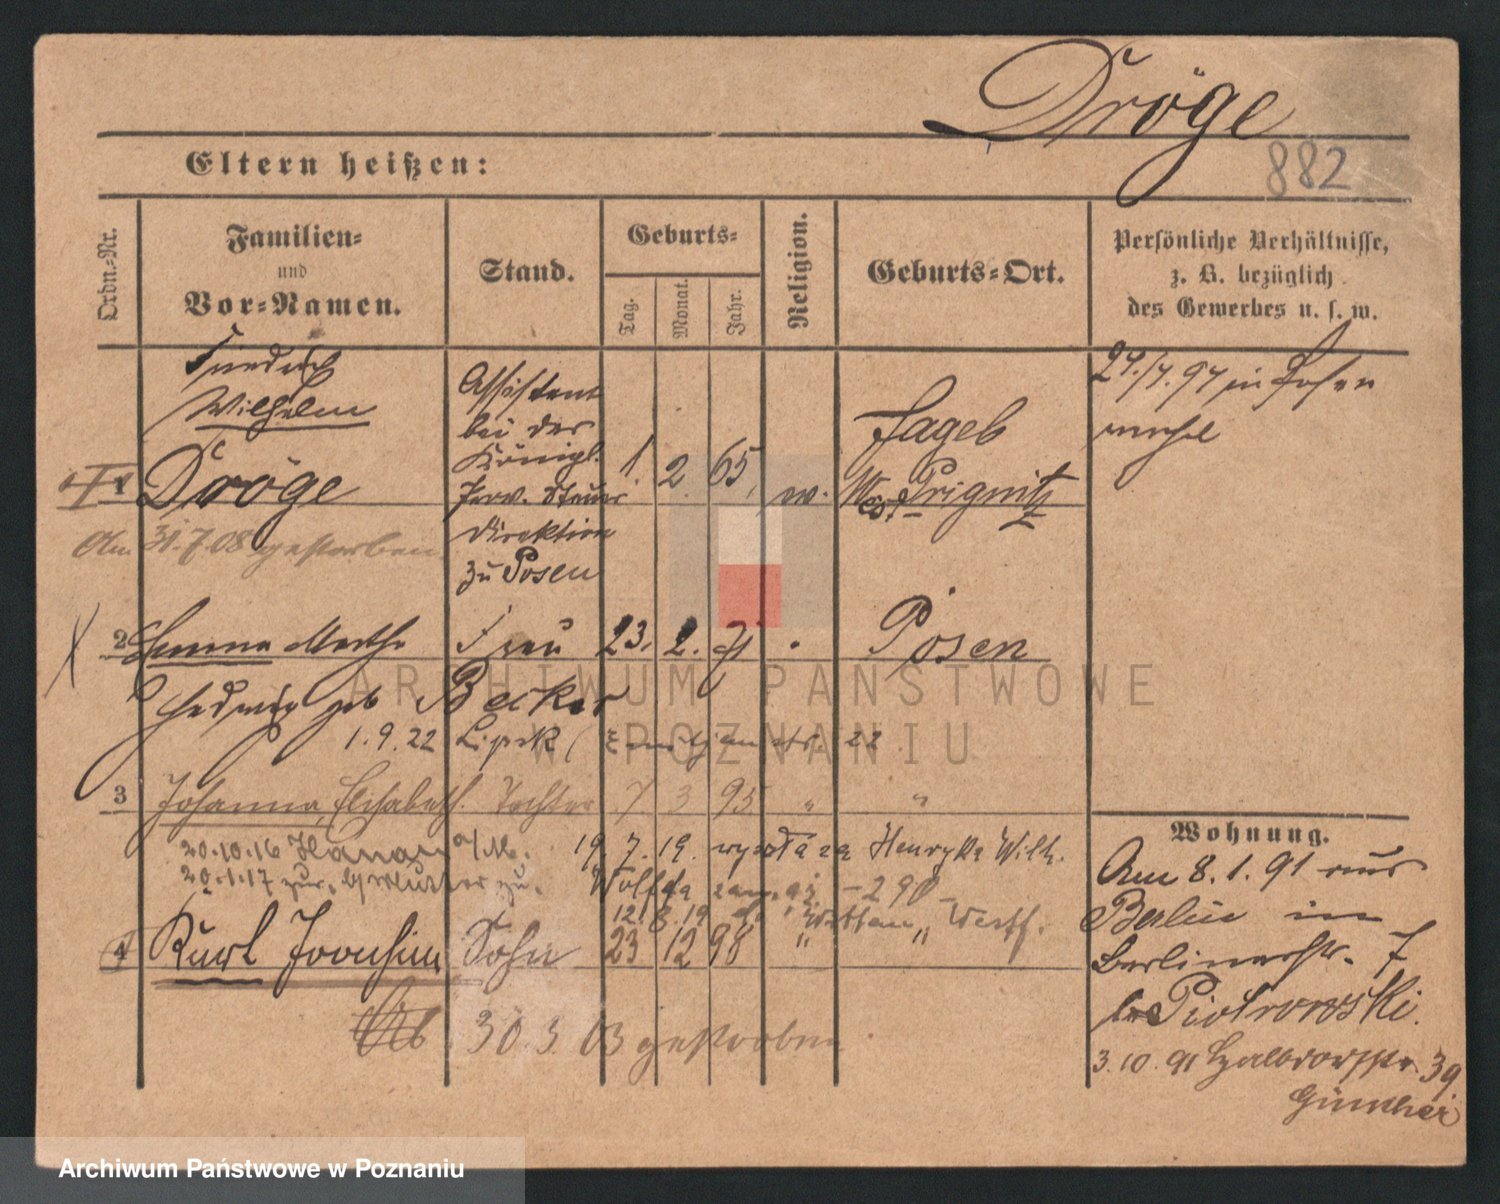 Dröge
882
Eltern heißen:
Ordn.-Nr.
Familien-
und
Vor-Namen.
Stand.
Geburts-
Tag.
Monat.
Jahr.
Religion.
Geburts-Ort.
Persönliche Verhältnisse,
z. B. bezüglich
des Gewerbes u. s. w.
Friedrich
Wilhelm
1 Dröge
Assistent
bei der
Königl.
Prov. Steuer
direktion
zu Posen
1. 2. 65.
ev.
Jageb
West Prignitz
24./7. 94 in Posen
Am 31.7.08 gestorben
2 Emma Martha
Hedwig geb Becker
Frau 23. 2. 71 Posen
1.9.22 Lipsk 22
3 Johanna, Elisabeth. Tochter 7 3 95 " "
20.10.16 Hanau a/M.
20.1.17 zur. Mutter zu.
19. 7. 19. wyszła za Henryka Wilh.
Wolffa zam. 290
12. 8. 19 Westf.
4 Kurt Joachim Sohn 23 12 98 " "
30.3.03 gestorben
Wohnung.
Am 8.1.91 aus
Berlin im
Berlinerstr. 7
bei Piotrowski.
3.10.91 Halbdorfstr. 39
Günther
ARCHIWUM PAŃSTWOWE
W POZNANIU
Archiwum Państwowe w Poznaniu